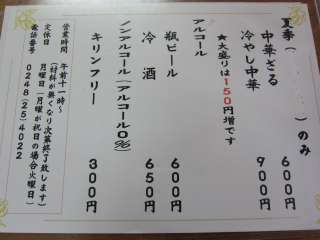 夏季( )のみ
中華ざる 600円
冷やし中華 900円
★大盛りは150円増です
アルコール
瓶ビール 600円
冷酒 650円
ノンアルコール(アルコール0%)
キリンフリー 300円
営業時間 午前十一時〜
(材料が無くなり次第終了致します)
定休日 月曜日(月曜が祝日の場合火曜日)
電話番号 0248(25)4022